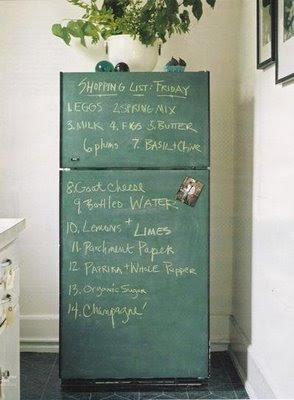 SHOPPING LIST: FRIDAY
1. EGGS 2. SPRING MIX
3. MILK 4. FIGS 5. BUTTER
6. plums 7. BASIL + Chive
8. Goat Cheese
9. Bottled WATER
10. Lemons + LIMES
11. Parchment Paper
12 PAPRIKA + Whole Pepper
13. Organic Sugar
14. Champagne!